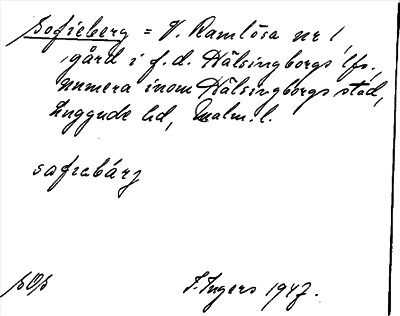 Sofieberg = V. Ramlösa nr 1
gård i f.d. Hälsingborgs lfs,
numera inom Hälsingborgs stad,
Luggude hd, Malm. l.
safiabárj
I. Ingers 1947.